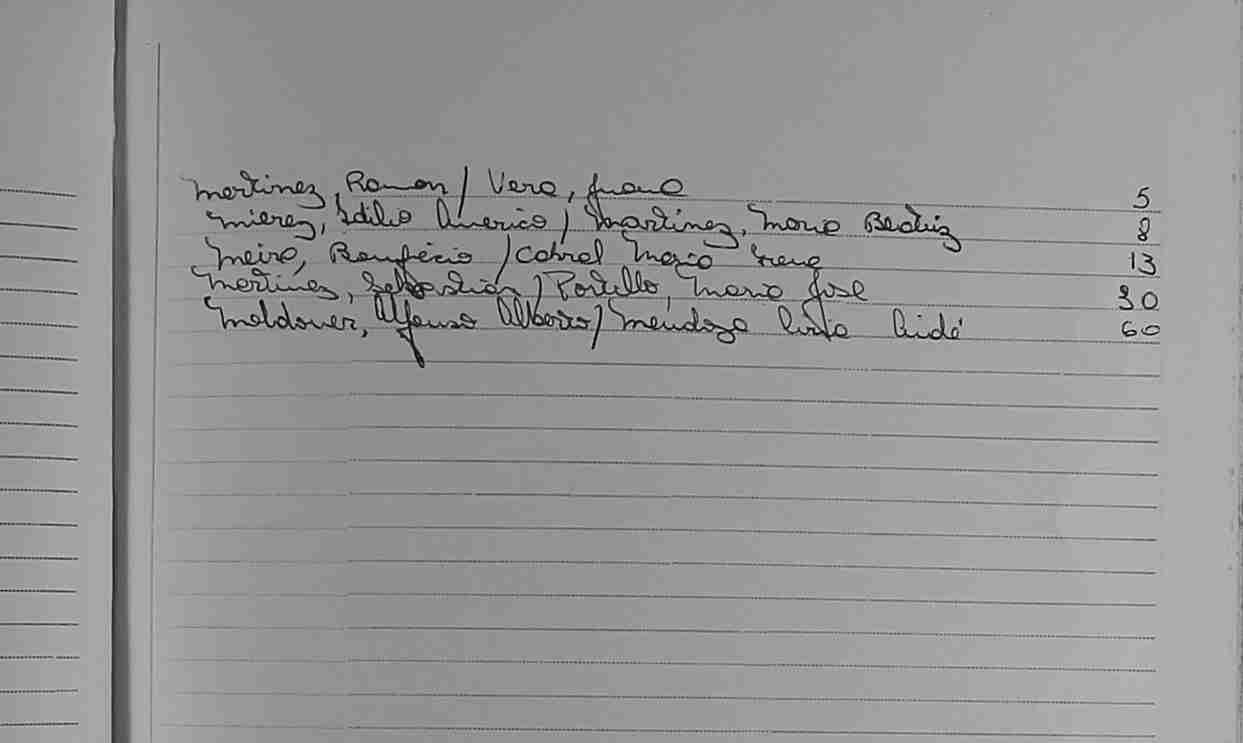 Martinez, Ramon / Vera, Juana 5
Mierez, Idilio Americo / Martinez, Maria Beatriz 8
Meiro, Bonifacio / Cabral Maria Irene 13
Martinez, Sebastián / Portillo, Maria José 30
Maldoner, Alfonso Alberto / Mendoza Lidé 60